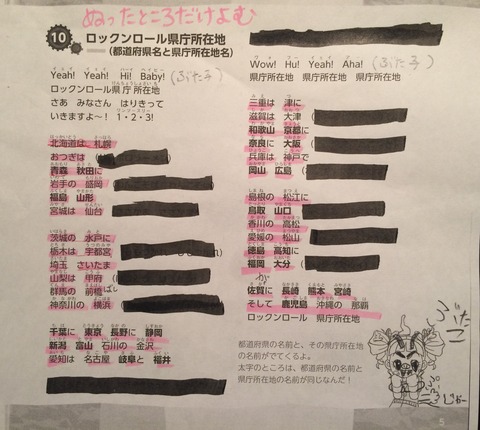 ぬったところだけよむ
10 ロックンロール県庁所在地
(都道府県名と県庁所在地名)
Yeah! Yeah! Hi! Baby! (ぶた子)
ロックンロール県庁所在地
さあ みなさん はりきって
いきますよ〜! 1・2・3!
北海道は 札幌
おつぎは
青森 秋田に
岩手の 盛岡
福島 山形
宮城は 仙台
茨城の 水戸に
栃木は 宇都宮
埼玉 さいたま
山梨は 甲府
群馬の 前橋
神奈川の 横浜
千葉に 東京 長野に 静岡
新潟 富山 石川の 金沢
愛知は 名古屋 岐阜と 福井
Wow! Hu! Yeah! Aha! (ぶた子)
県庁所在地 県庁所在地
三重は 津に
滋賀は 大津
和歌山 京都に
奈良に 大阪
兵庫は 神戸で
岡山 広島
島根の 松江に
鳥取 山口
香川の 高松
愛媛の 松山
徳島 高知に
福岡 大分
佐賀に 長崎 熊本 宮崎
そして 鹿児島 沖縄の 那覇
ロックンロール 県庁所在地
都道府県の名前と、その県庁所在地
の名前がでてくるよ。
太字のところは、都道府県の名前と
県庁所在地の名前が同じなんだ!
ぶたこ
5